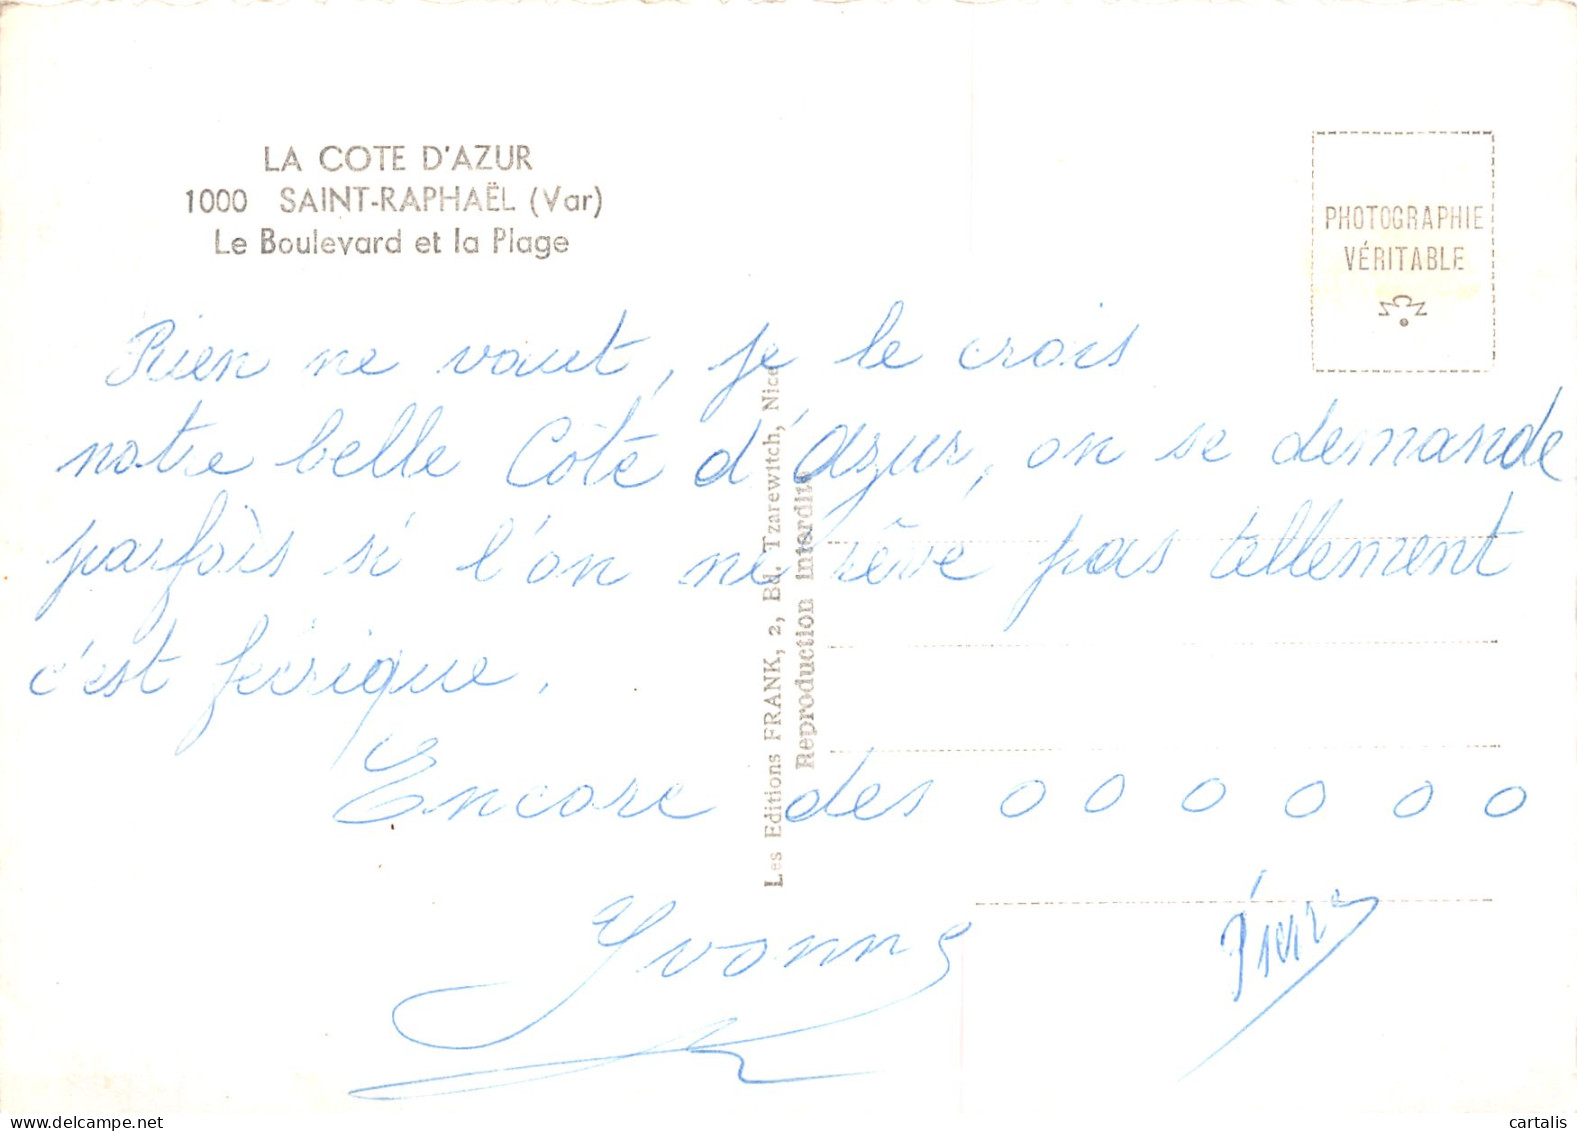 LA COTE D'AZUR
1000 SAINT-RAPHAËL (Var)
Le Boulevard et la Plage
PHOTOGRAPHIE
VÉRITABLE
Rien ne vaut, je le crois
notre belle Côte d'Azur, on se demande
parfois si l'on ne rêve pas tellement
c'est féérique.
Encore des o o o o o o
Yvonne
Pierre
Les Editions FRANK, 2, Bd. Tzarewitch, Nice
Reproduction interdite
delcampe.net
cartalis